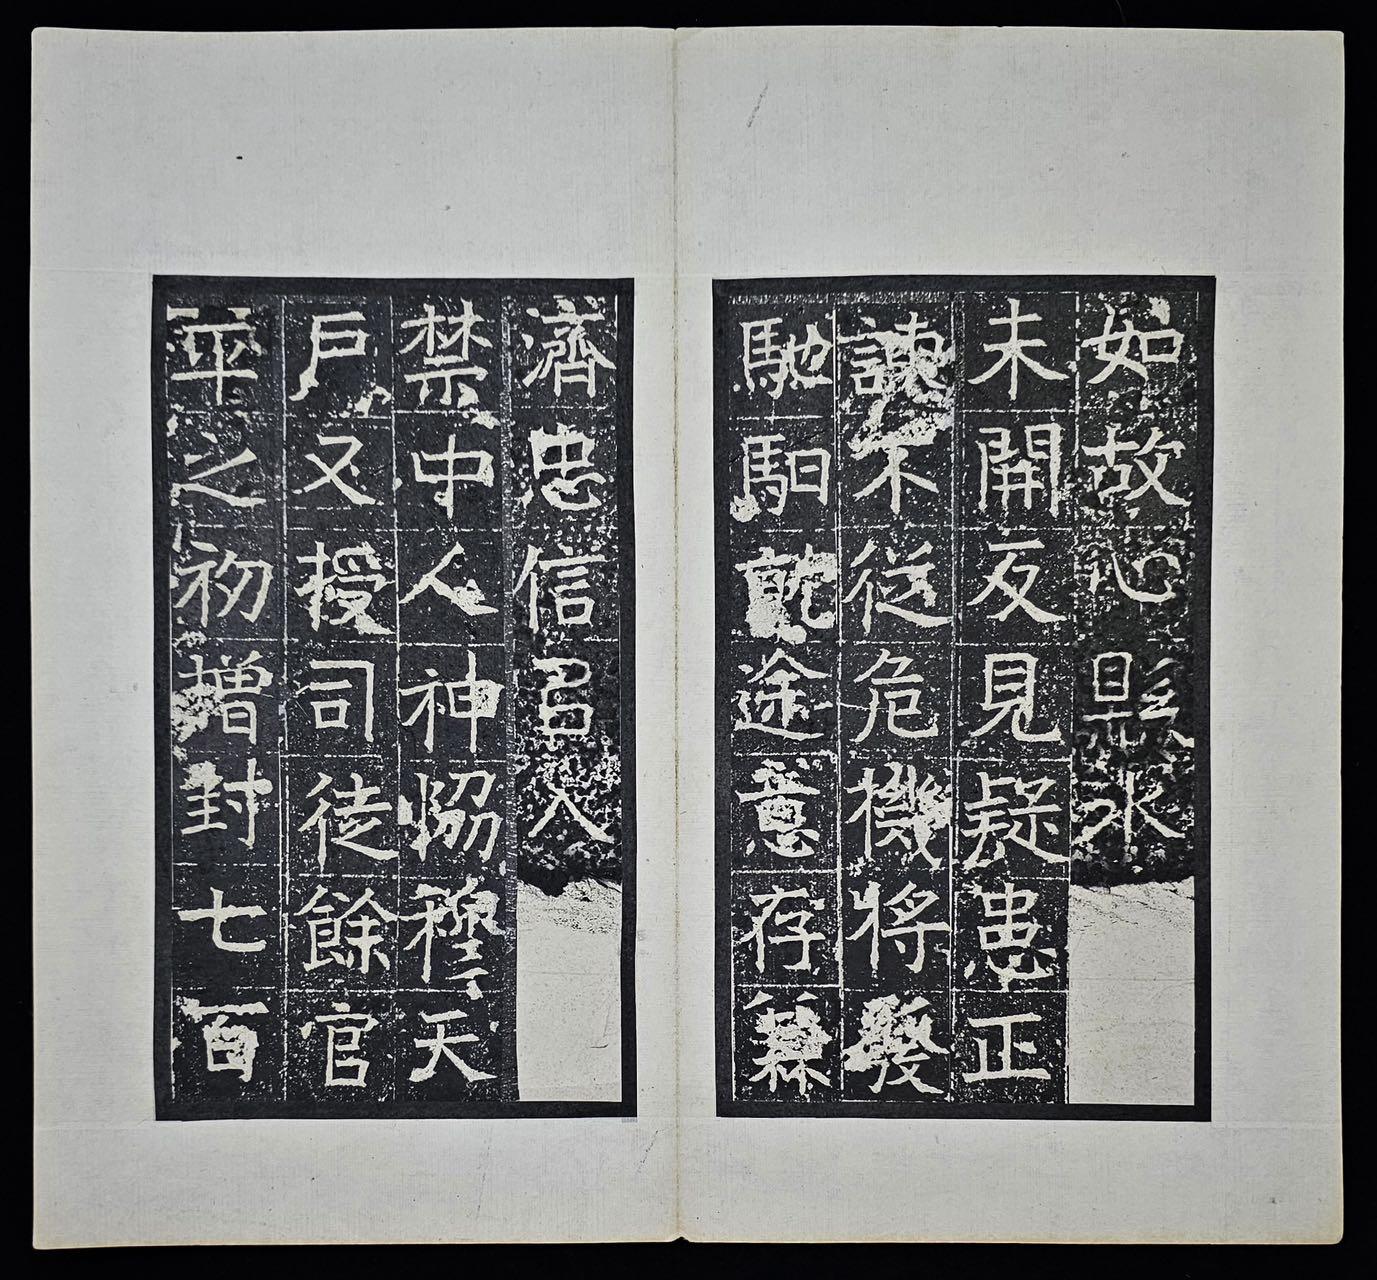 如故心縣水
未開反見疑患正
諫不從危機將發
馳馹就途意存兼
濟忠信召入
禁中人神恊穆天
戶又授司徒餘官
平之初增封七百